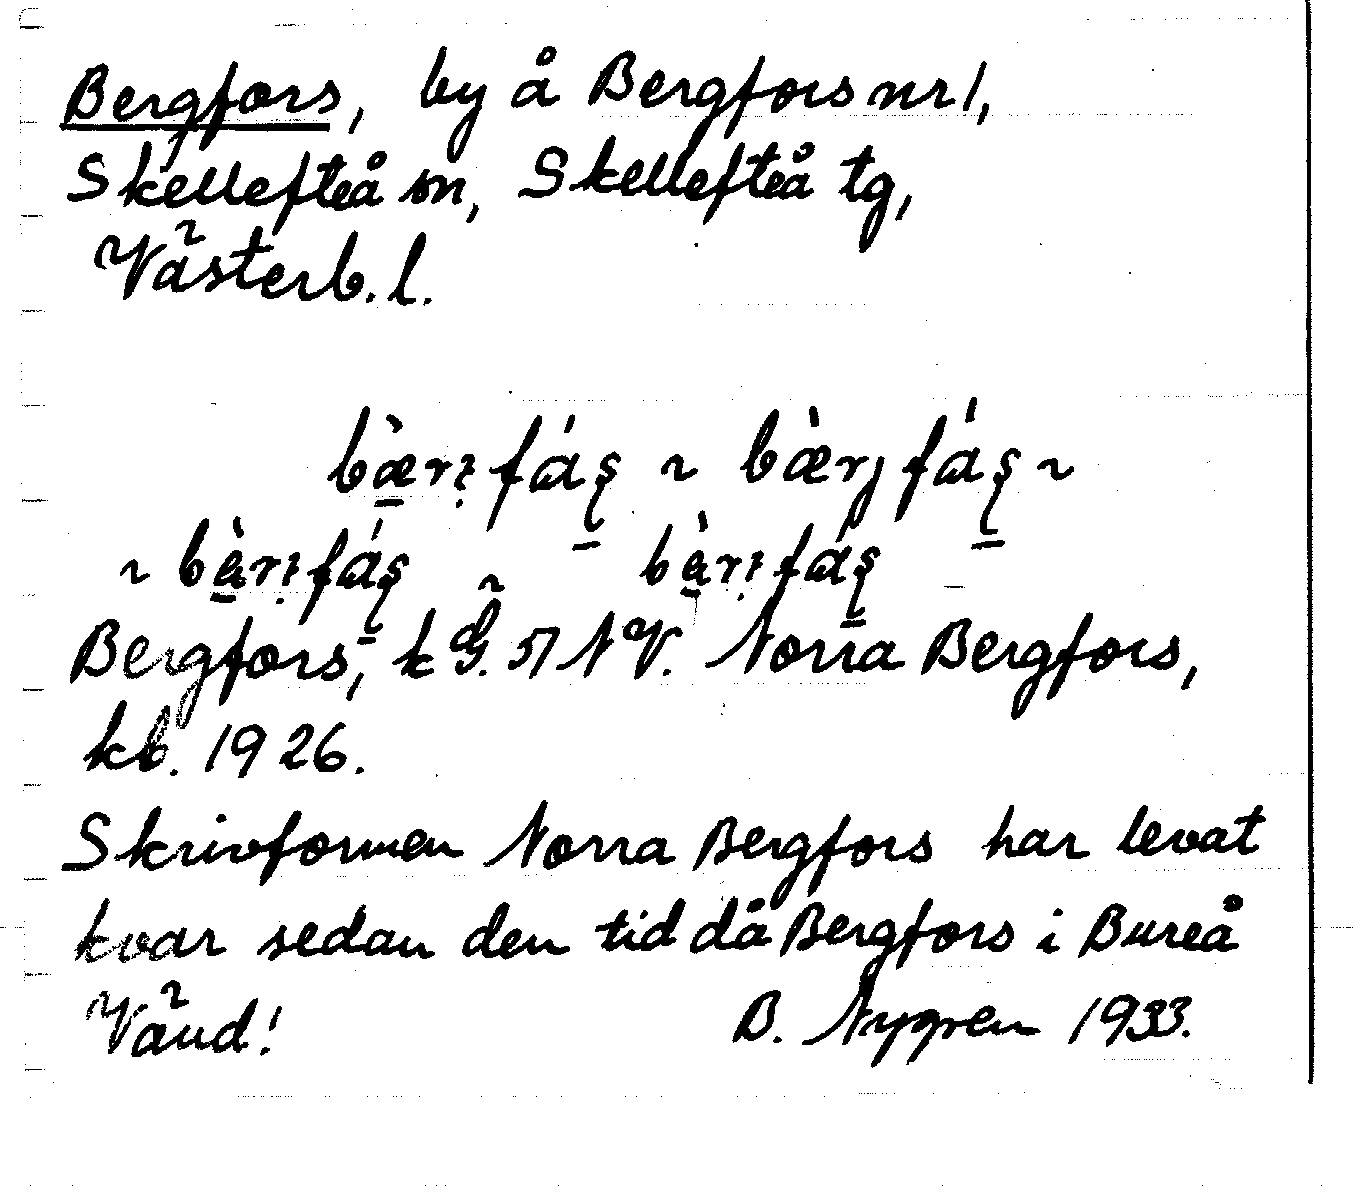 Bergfors, by å Bergfors nr 1,
Skellefteå sn, Skellefteå tg,
Västerb. l.
Bergfors, k G. 57 NV. Norra Bergfors,
kb. 1926.
Skrivformen Norra Bergfors har levat
kvar sedan den tid då Bergfors i Bureå
Vänd! B. Nygren 1933.